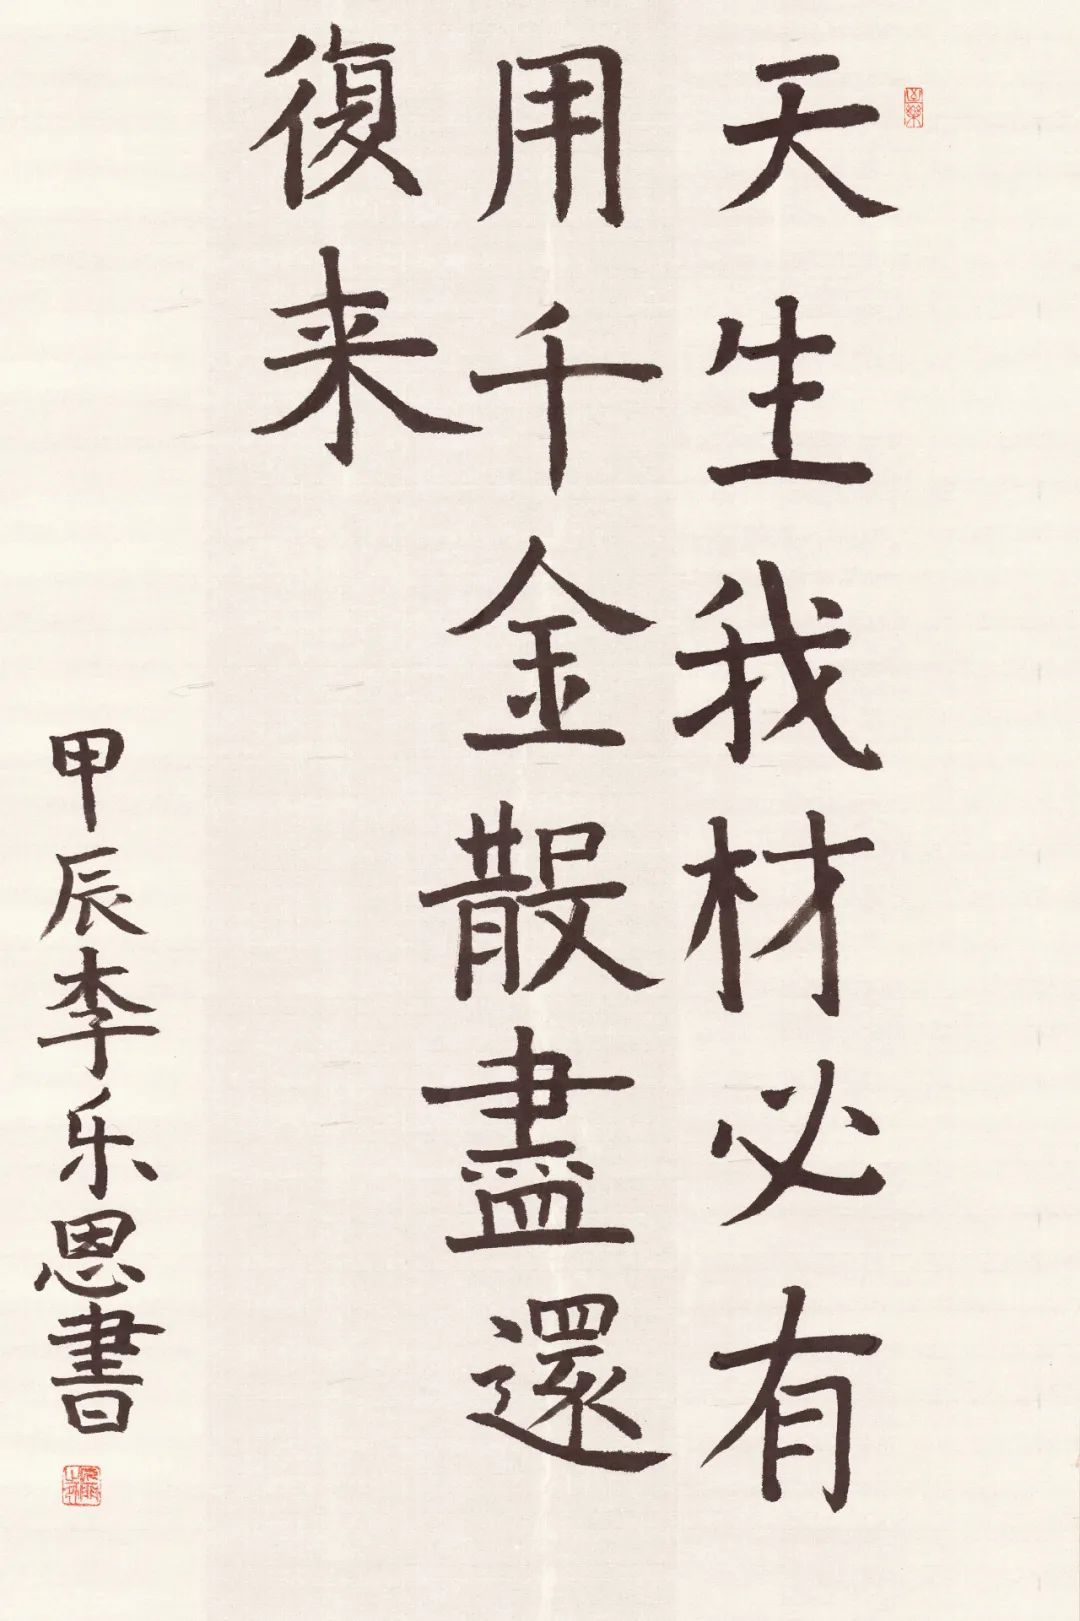 天生我材必有
用千金散盡還
復来
甲辰李乐恩書